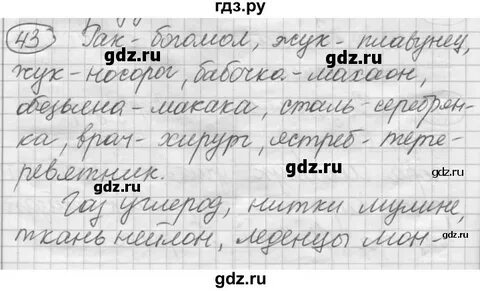 гдз.ру
43 Рак - богомол, жук - плавунец,
gdz.ru gdz.ru
жук - носорог, бабочка - махаон,
обезьяна - макака, сталь - серебрян-
ка, врач - хирург, ястреб - тете-
gdz.ru gdz.ru
ревятник.
Газ углерод, нитки мулине,
ткань нейлон, леденцы мон-
gdz.ru gdz.ru